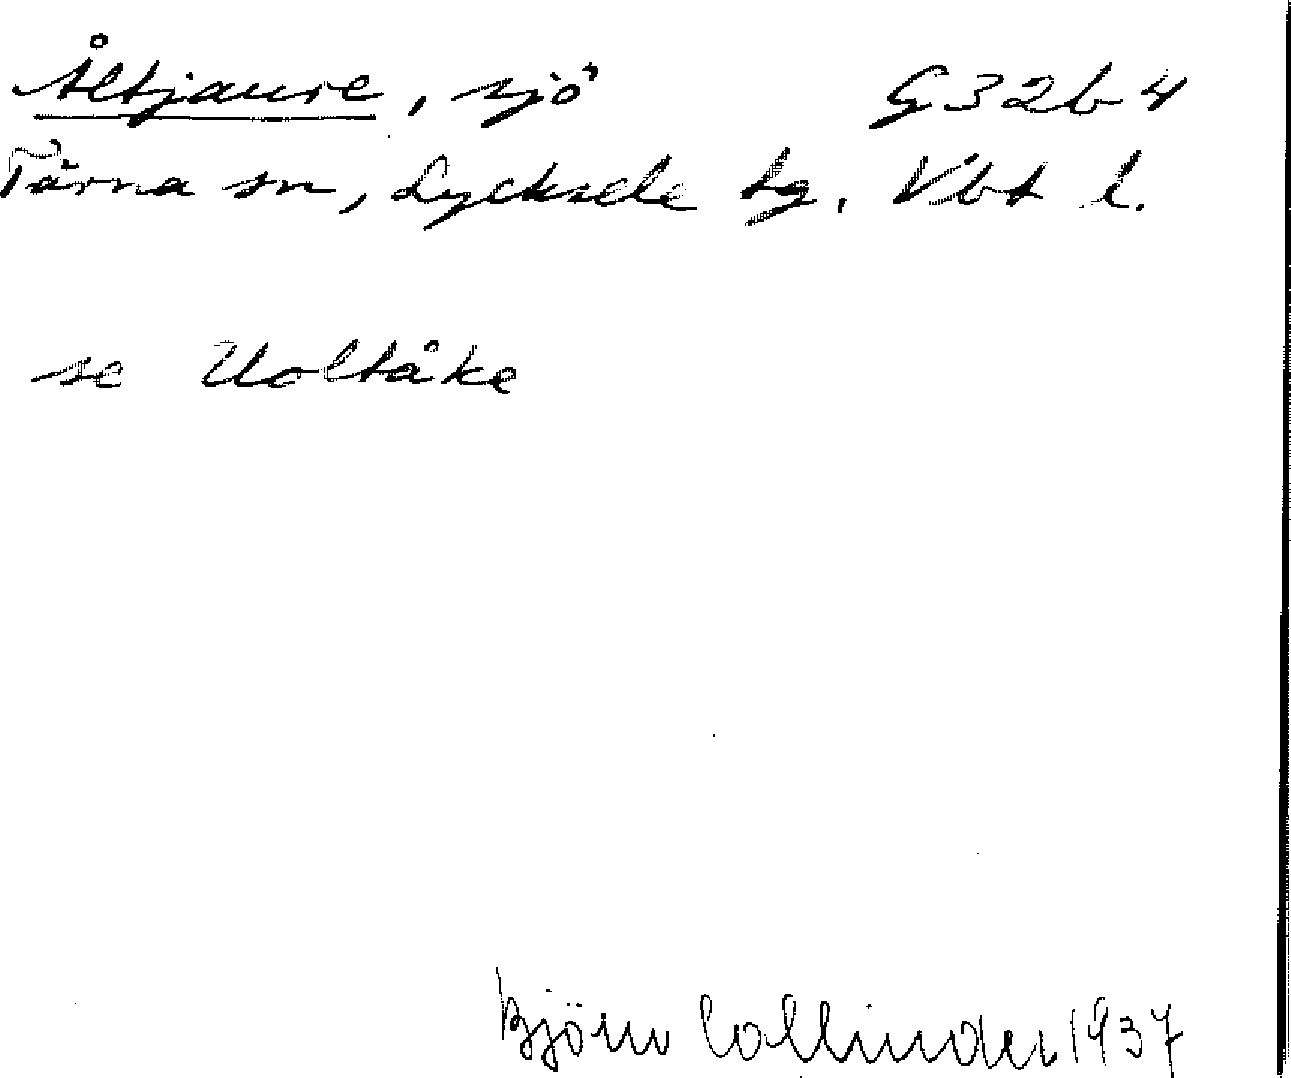 Åltjaure, sjö G32b4
Tärna sn, Lycksele lg. Vbt l.
se Uoltåke
Björn Collinder 1937